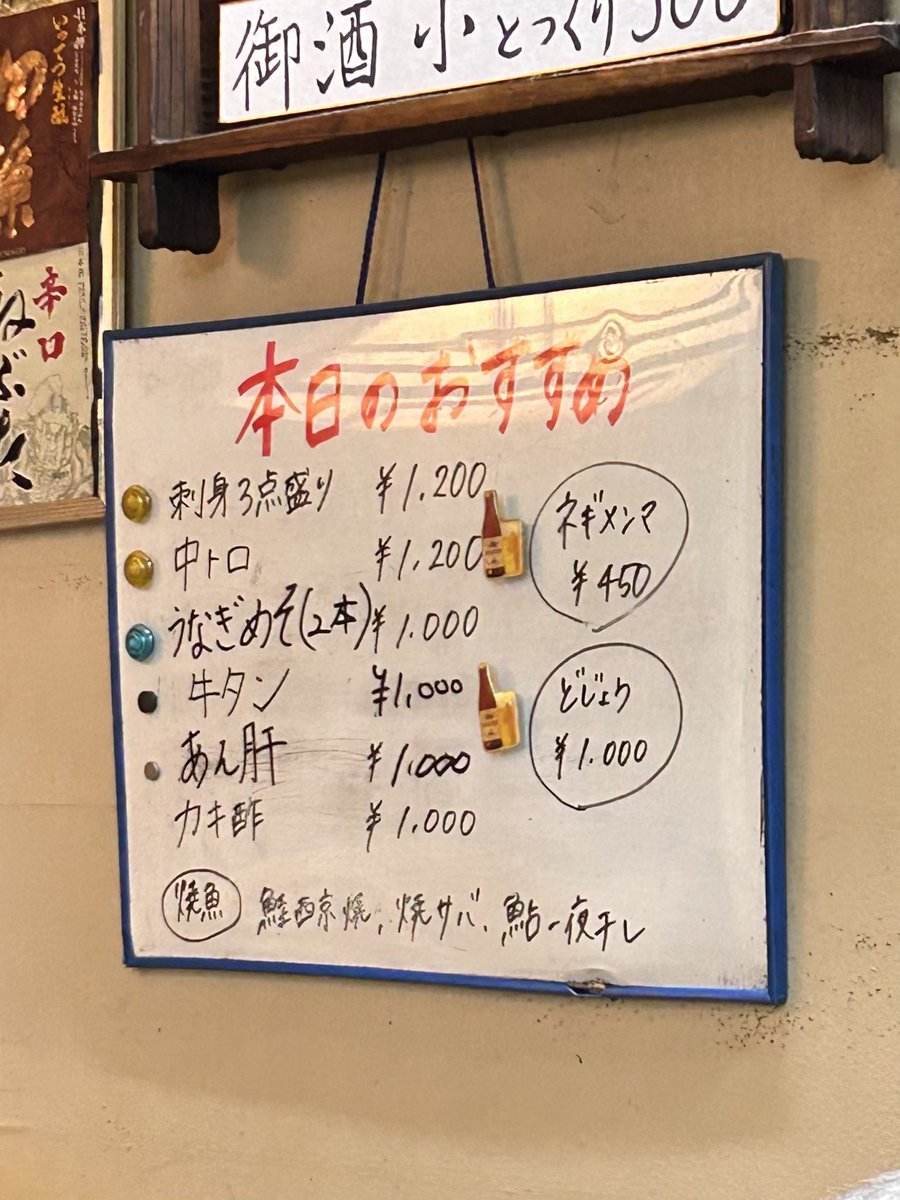 御酒 小 とっくり500
辛口
本日のおすすめ
刺身3点盛り ¥1,200
中トロ ¥1,200
うなぎめそ(2本) ¥1,000
牛タン ¥1,000
あん肝 ¥1,000
カキ酢 ¥1,000
ネギメンマ
¥450
どじょう
¥1.000
焼魚 鮭西京焼、焼サバ、鮎一夜干し